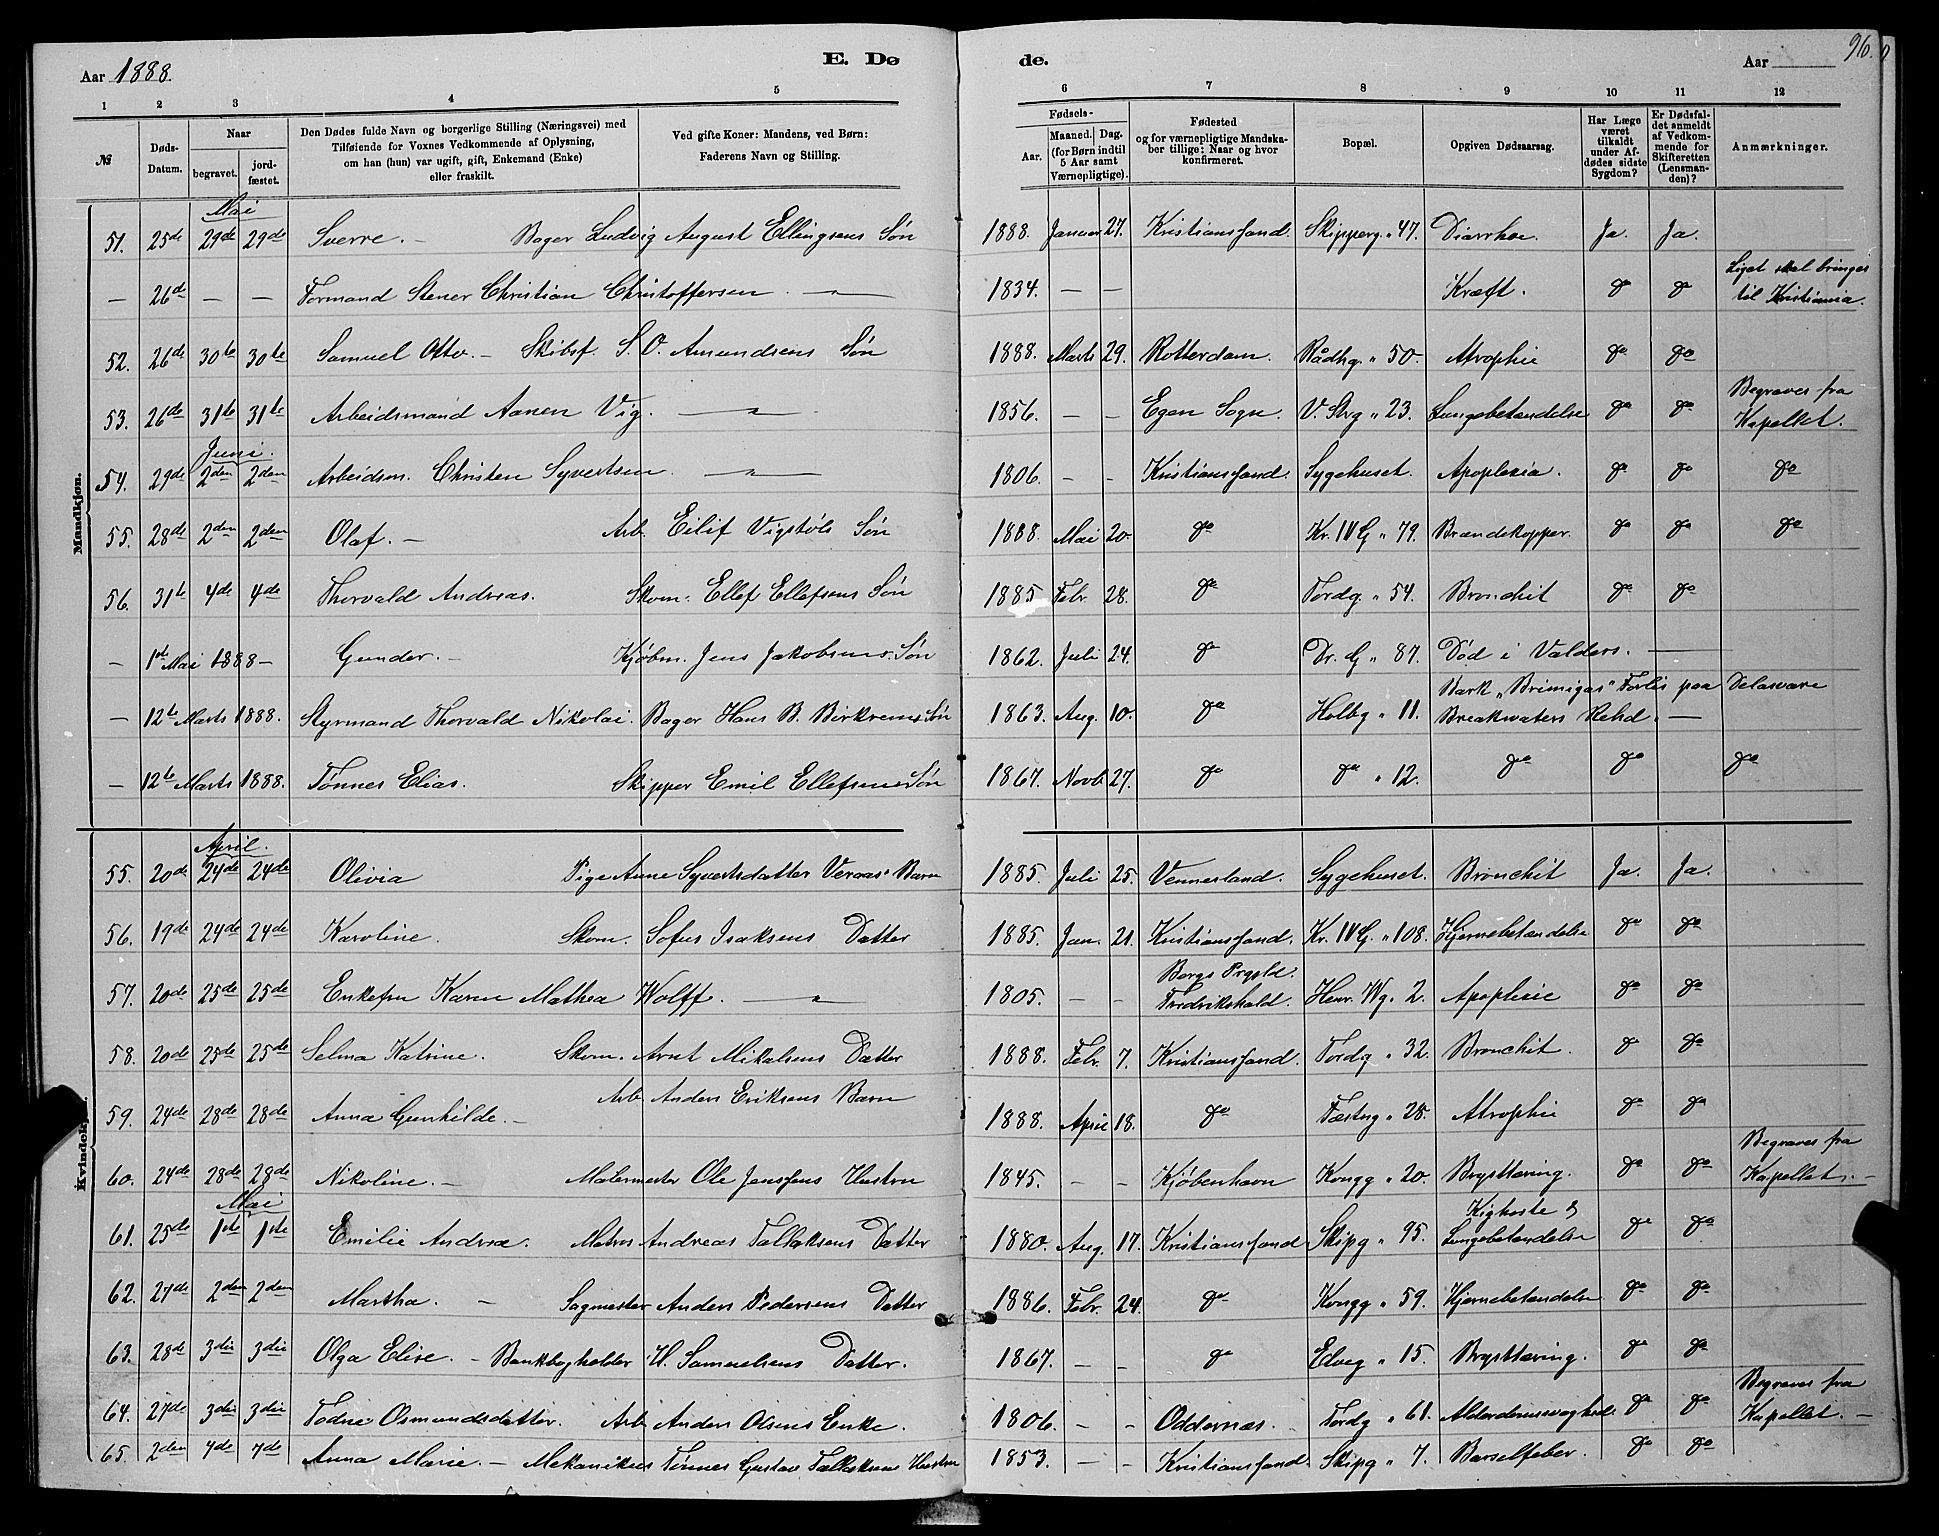 Aar 1888.
E. Dø
de.
Aar
96.
1 2 3 4 5 6 7 8 9 10 11 12
№
Døds-Datum.
Naar
begravet.
jord-fæstet.
Den Dødes fulde Navn og borgerlige Stilling (Næringsvei) med
Tilføiende for Voxnes Vedkommende af Oplysning,
om han (hun) var ugift, gift, Enkemand (Enke)
eller fraskilt.
Ved gifte Koner: Mandens, ved Børn:
Faderens Navn og Stilling.
Fødsels-
Aar.
Maaned. Dag.
(for Børn indtil
5 Aar samt
Værnepligtige).
Fødested
og for værnepligtige Mandska-
ber tillige: Naar og hvor
konfirmeret.
Bopæl.
Opgiven Dødsaarsag.
Har Læge
været
tilkaldt
under Af-
dødes sidste
Sygdom?
Er Dødsfal-
det anmeldt
af Vedkom-
mende for
Skifteretten
(Lensman-
den)?
Anmærkninger.
Mandkjøn.
Mai
51. 25de 29de 29de Sverre. – Bager Ludvig August Ellingsens Søn 1888. Januar 27. Kristianssand. Skipperg. " 47. Diarrhoe. Ja. Ja.
– 26de – – Formand Stener Christian Christoffersen. 1834. – – Kræft. do do Liget skal bringes
til Kristiania.
52. 26de 30te 30te Samuel Otto. – Skibsf. S. O. Amundsens Søn 1888. Marts 29. Rotterdam. Rådhg. " 50. Atrophie do do
53. 26de 31te 31te Arbeidsmand Aanen Vig. 1856. – – Egen Sogn. V. Strg " 23. Lungebetændelse do do Begraves fra
Kapellet.
Juni.
54. 29de 2den 2den Arbeidsm. Christen Syvertsen. 1806. – – Kristianssand. Sygehuset. Apoplexia. do do do
55. 28de 2den 2den Olaf. – Arb. Eilif Vigstøls Søn 1888. Mai 20. do Kr. IV G " 79. Brændekopper. do do do
56. 31te 4de 4de Thorvald Andreas. Skom. Ellef Ellefsens Søn 1885. Febr. 28. do Tordg. " 54. Bronchit do do
– 1ste Mai 1888 – Gunder. – Kjøbm. Jens Jakobsens Søn 1862. Juli 24. do Dr. G " 87. Død i Valders. –
– 12te Marts 1888. Styrmand Thorvald Nikolai. Bager Hans B. Birkrems Søn 1863. Aug. 10. do Holbg " 11. Bark "Brimigas" Forlis paa Delavare
Breakwaters Rehd. –
– 12te Marts 1888. Tønnes Elias. Skipper Emil Ellefsens Søn 1867. Novb 27. do do " 12. do do do
Kvindekjøn.
April.
55. 20de 24de 24de Olivia Pige Anne Syvertsdatter Veraas's Barn 1885. Juli 25. Vennesland. Sygehuset. Bronchit Ja. Ja.
56. 19de 24de 24de Karoline. Skom. Sofus Isaksens Datter 1885. Jan. 21. Kristianssand. Kr. IV G. " 108. Hjernebetændelse do do
57. 20de 25de 25de Enkefru Karen Mathea Wolff. 1805. – – Bergs Prgjld.
Fredrikshald. Henr. Wg. 2. Apoplexie do do
58. 20de 25de 25de Selma Katrine. Skom. Arnt Mikalsens Datter 1888. Febr. 7. Kristianssand. Tordg " 32. Bronchit. do do
59. 24de 28de 28de Anna Gunhilde. – Arb Anders Eriksens Barn 1888. April 18. do Fæstng " 28. Atrophie do do
60. 24de 28de 28de Nikoline. – Malermester Ole Jenssens Hustru 1845. – – Kjøbenhavn Kongg " 20. Brysttæring. do do Begraves fra
Kapellet. –
Mai
61. 25de 1ste 1ste Emilie Andrea. Matros Andreas Tallaksens Datter 1880. Aug. 17. Kristianssand Skipg " 95. Kighoste &
Lungebetændelse do do
62. 27de 2den 2den Martha. – Sagmester Anders Pedersens Datter 1886. Febr. 24. do Kongg " 59. Hjernebetændelse do do
63. 28de 3die 3die Olga Elise. – Bankbogholder H. Samuelsens Datter. 1867. – – do Elveg " 15. Brysttæring. do do
64. 27de 3die 3die Todne Osmundsdatter. Arb Anders Olsens Enke. 1806. – – Oddernæs. Tordg " 61. Alderdomssvaghed. do do Begraves fra
Kapellet. –
65. 2den 7de 7de Anna Marie. – Mekanikus Tønnes Gustav Tallaksens Hustru 1853. – – Kristianssand. Skipg " 7. Barselfeber. do do